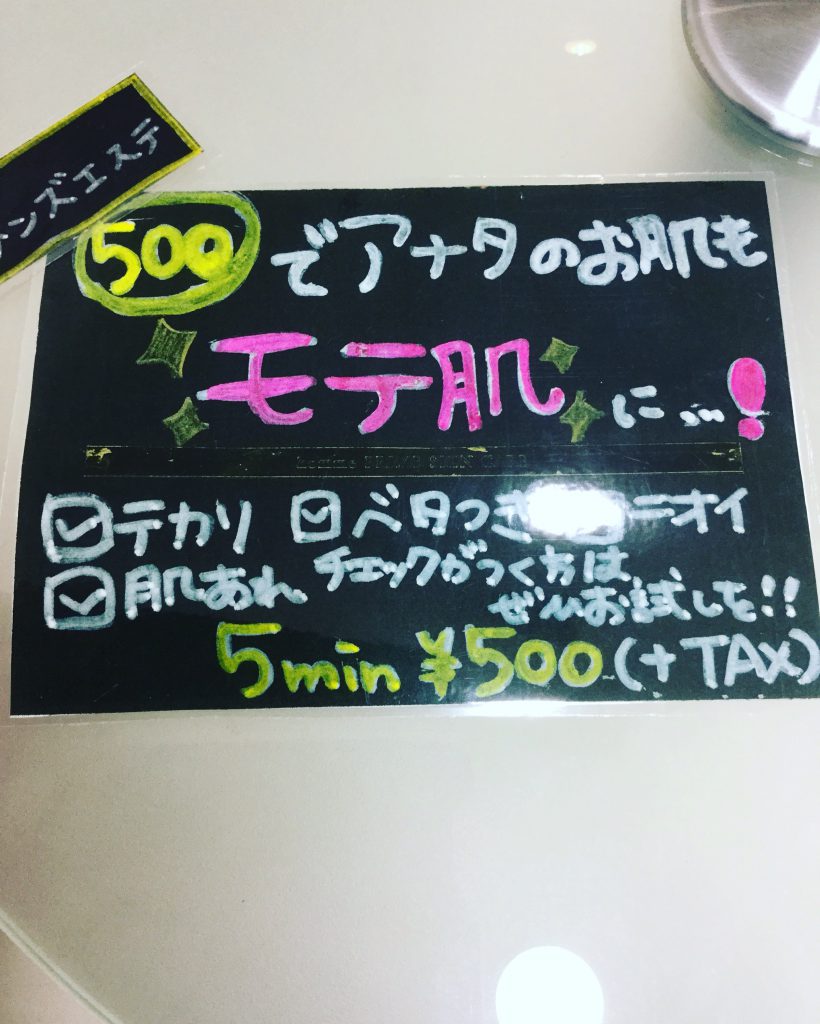 ンズエステ
500 でアナタのお肌も
モテ肌に…!
☑テカリ ☑ベタつき ニオイ
☑肌あれ チェックがつく方は
ぜひお試しを!!
5min ¥500(+TAX)